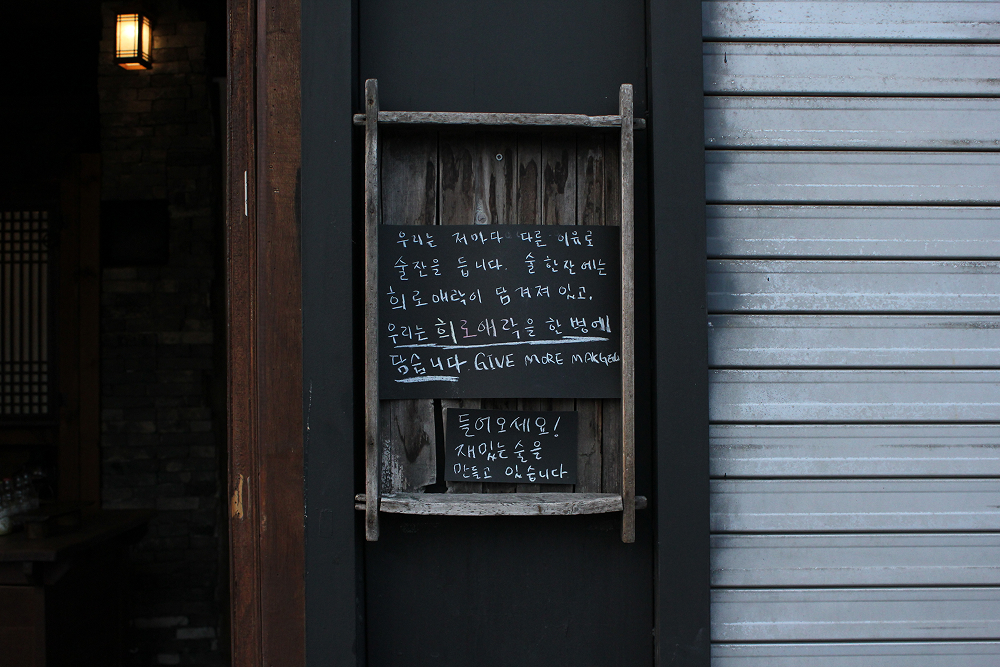 우리는 저마다 다른 이유로
술잔을 듭니다. 술 한잔에는
희로애락이 담겨져 있고,
우리는 희로애락을 한 병에
담습니다. GIVE MORE MAKGEOLLI
들어오세요!
재밌는 술을
만들고 있습니다